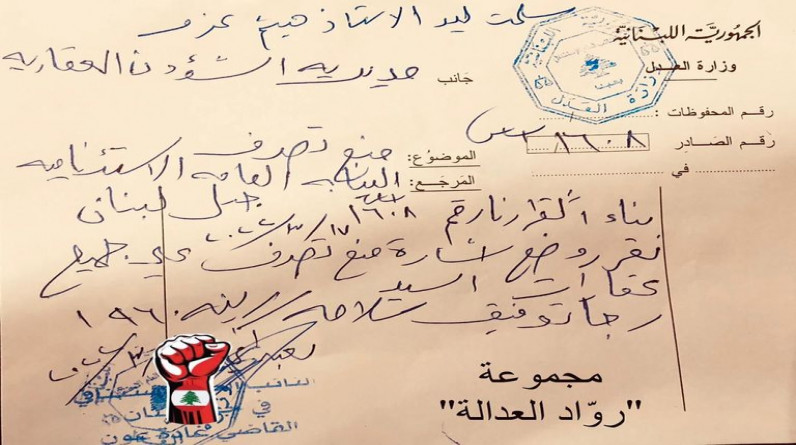 سلمت ليد الاستاذ هيثم عزو
الجمهورية اللبنانية
وزارة العدل
جانب مديرية الشؤون العقارية
رقم المحفوظات:
رقم الصادر ١٦٠٨/ص
في
الموضوع: منع تصرف
المرجع: النيابة العامة الاستئنافية
جبل لبنان
بناء لقرارنا رقم ١٦٠٨/ص
٢٠٢٢/٣/١٧
نقرر وضع اشارة منع تصرف على جميع
عقارات السيد
رجا توفيق سلامه ١٩٦٠
بعبدا
النائب العام الاستئنافي
في جبل لبنان
القاضي غادة عون
مجموعة
"روّاد العدالة"